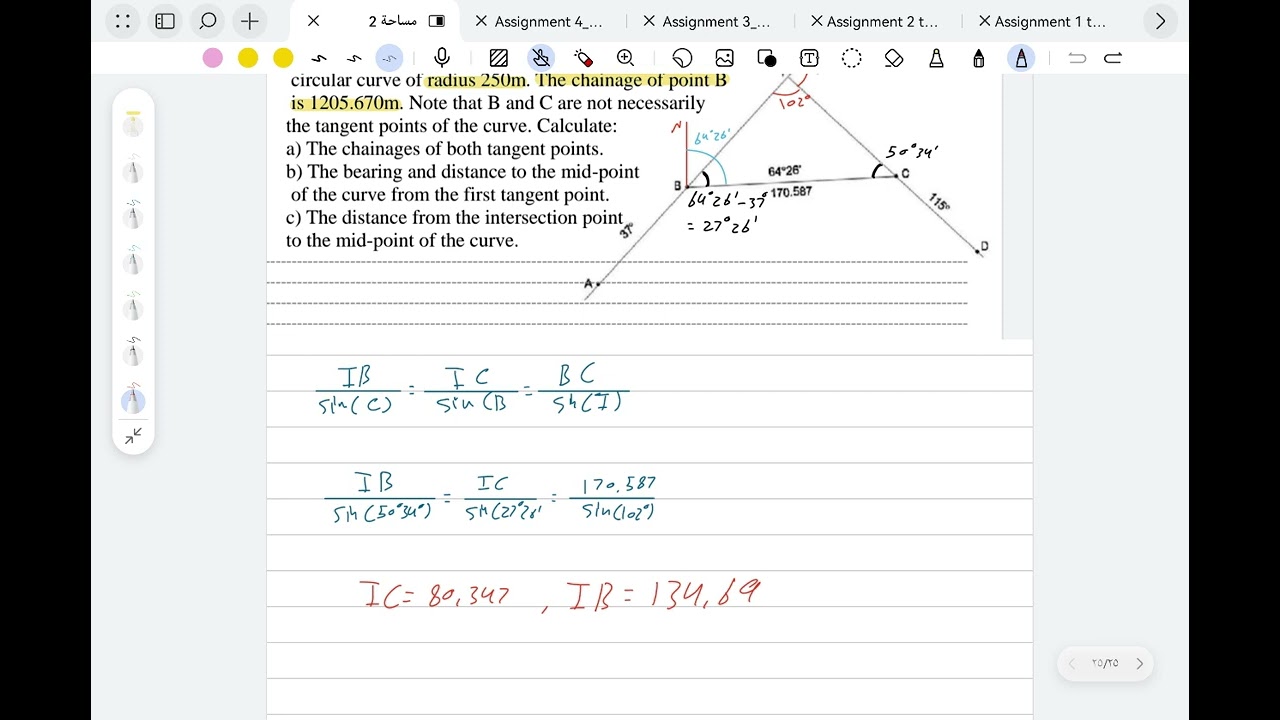 مساحة 2
Assignment 4_...
Assignment 3_...
Assignment 2 t...
Assignment 1 t...
circular curve of radius 250m. The chainage of point B
is 1205.670m. Note that B and C are not necessarily
the tangent points of the curve. Calculate:
a) The chainages of both tangent points.
b) The bearing and distance to the mid-point
of the curve from the first tangent point.
c) The distance from the intersection point
to the mid-point of the curve.
102°
N
64°26'
50°34'
64°26'
B
C
170.587
64°26'-37°
= 27°26'
115°
37°
D
A
IB / sin(C) = IC / sin(B = BC / sin(I)
IB / sin(50°34°) = IC / sin(27°26' = 170.587 / sin(102°)
IC= 80,347 , IB = 134,69
٢٥/٢٥